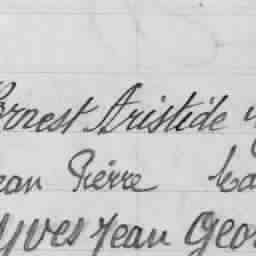 Ernest Aristide
ean Pierre
Yves Jean Geor